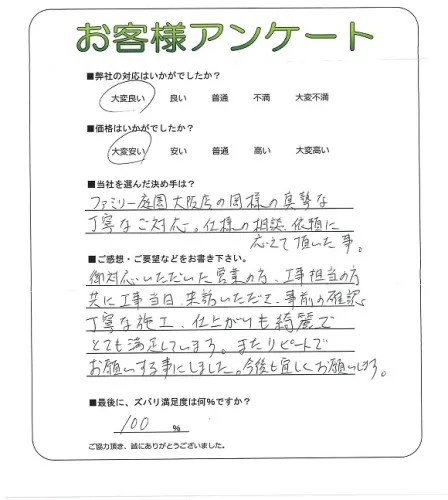 お客様アンケート
■弊社の対応はいかがでしたか？
大変良い 良い 普通 不満 大変不満
■価格はいかがでしたか？
大変安い 安い 普通 高い 大変高い
■当社を選んだ決め手は？
ファミリー庭園大阪店の岡様の真摯な
丁寧なご対応。仕様の相談、依頼に
応えて頂いた事。
■ご感想・ご要望などをお書き下さい。
御対応いただいた営業の方、工事担当の方
共に工事当日来訪いただき、事前の確認、
丁寧な施工、仕上がりも綺麗で
とても満足しています。またリピートで
お願いする事にしました。今後も宜しくお願いします。
■最後に、ズバリ満足度は何％ですか？
100 ％
ご協力頂き、誠にありがとうございました。